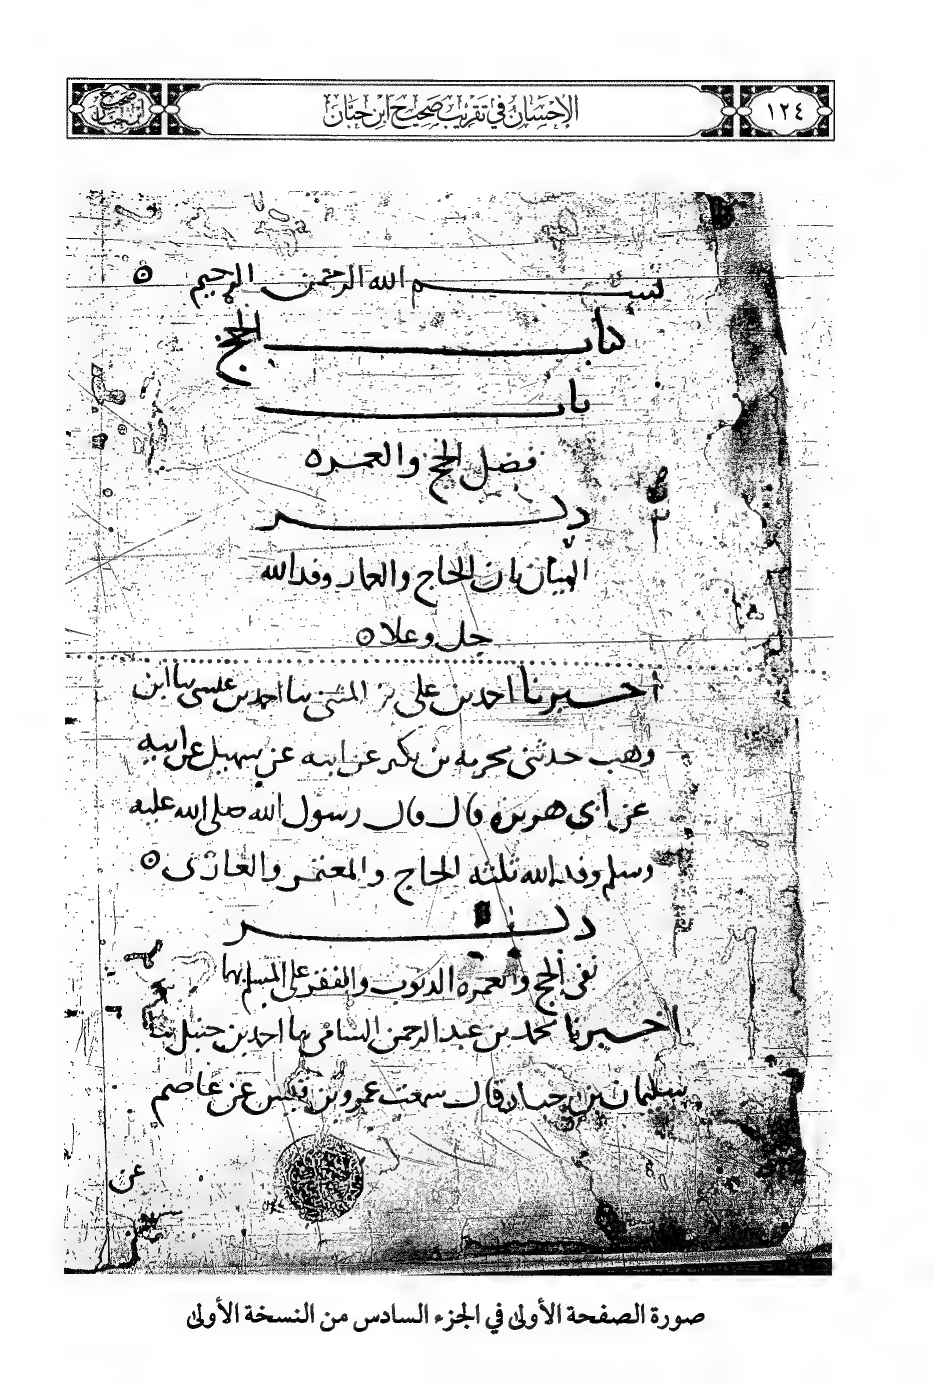 ١٢٤
الإحسان في تقريب صحيح ابن حبان
صحيح ابن حبان
بسم الله الرحمن الرحيم
كتاب الحج
باب
فضل الحج والعمره
ذكر
البيان بان الحاج والعمار وفد الله
جل وعلا
أخبرنا احمد بن علي بن المثنى ثنا احمد بن عيسى ثنا ابن
وهب حدثنى مخرمة بن بكير عن ابيه عن سهيل عن ابيه
عن أبي هريرة قال قال رسول الله صلى الله عليه
وسلم وفد الله ثلثه الحاج والمعتمر والغازى
ذكر
نفى الحج والعمره الذنوب والفقر عن المسلم بهما
أخبرنا محمد بن عبد الرحمن السامى ثنا احمد بن حنبل ثنا
سليمان بن حيان قال سمعت عمرو بن قيس عن عاصم
عن
صورة الصفحة الأولى في الجزء السادس من النسخة الأولى